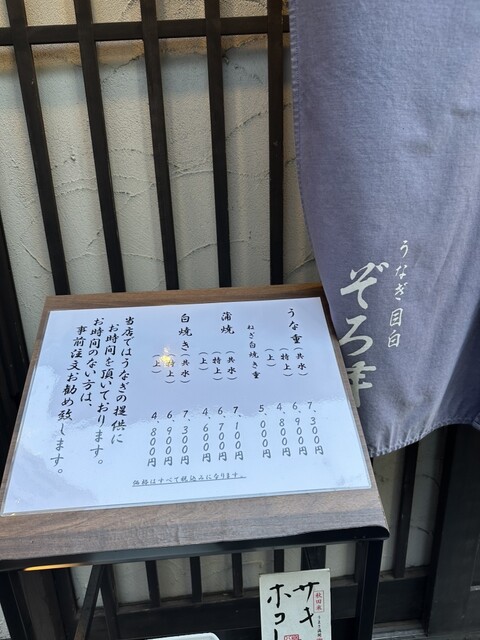 うなぎ目白
ぞろ目
うな重（共水） 7,300円
（特上） 6,900円
（上） 4,800円
ねぎ白焼き重 5,000円
蒲焼（共水） 7,100円
（特上） 6,700円
（上） 4,600円
白焼き（共水） 7,300円
（特上） 6,900円
（上） 4,800円
価格はすべて税込みになります。
当店ではうなぎの提供に
お時間を頂いております。
お時間のない方は、
事前注文お勧め致します。
秋田県
サキホコ